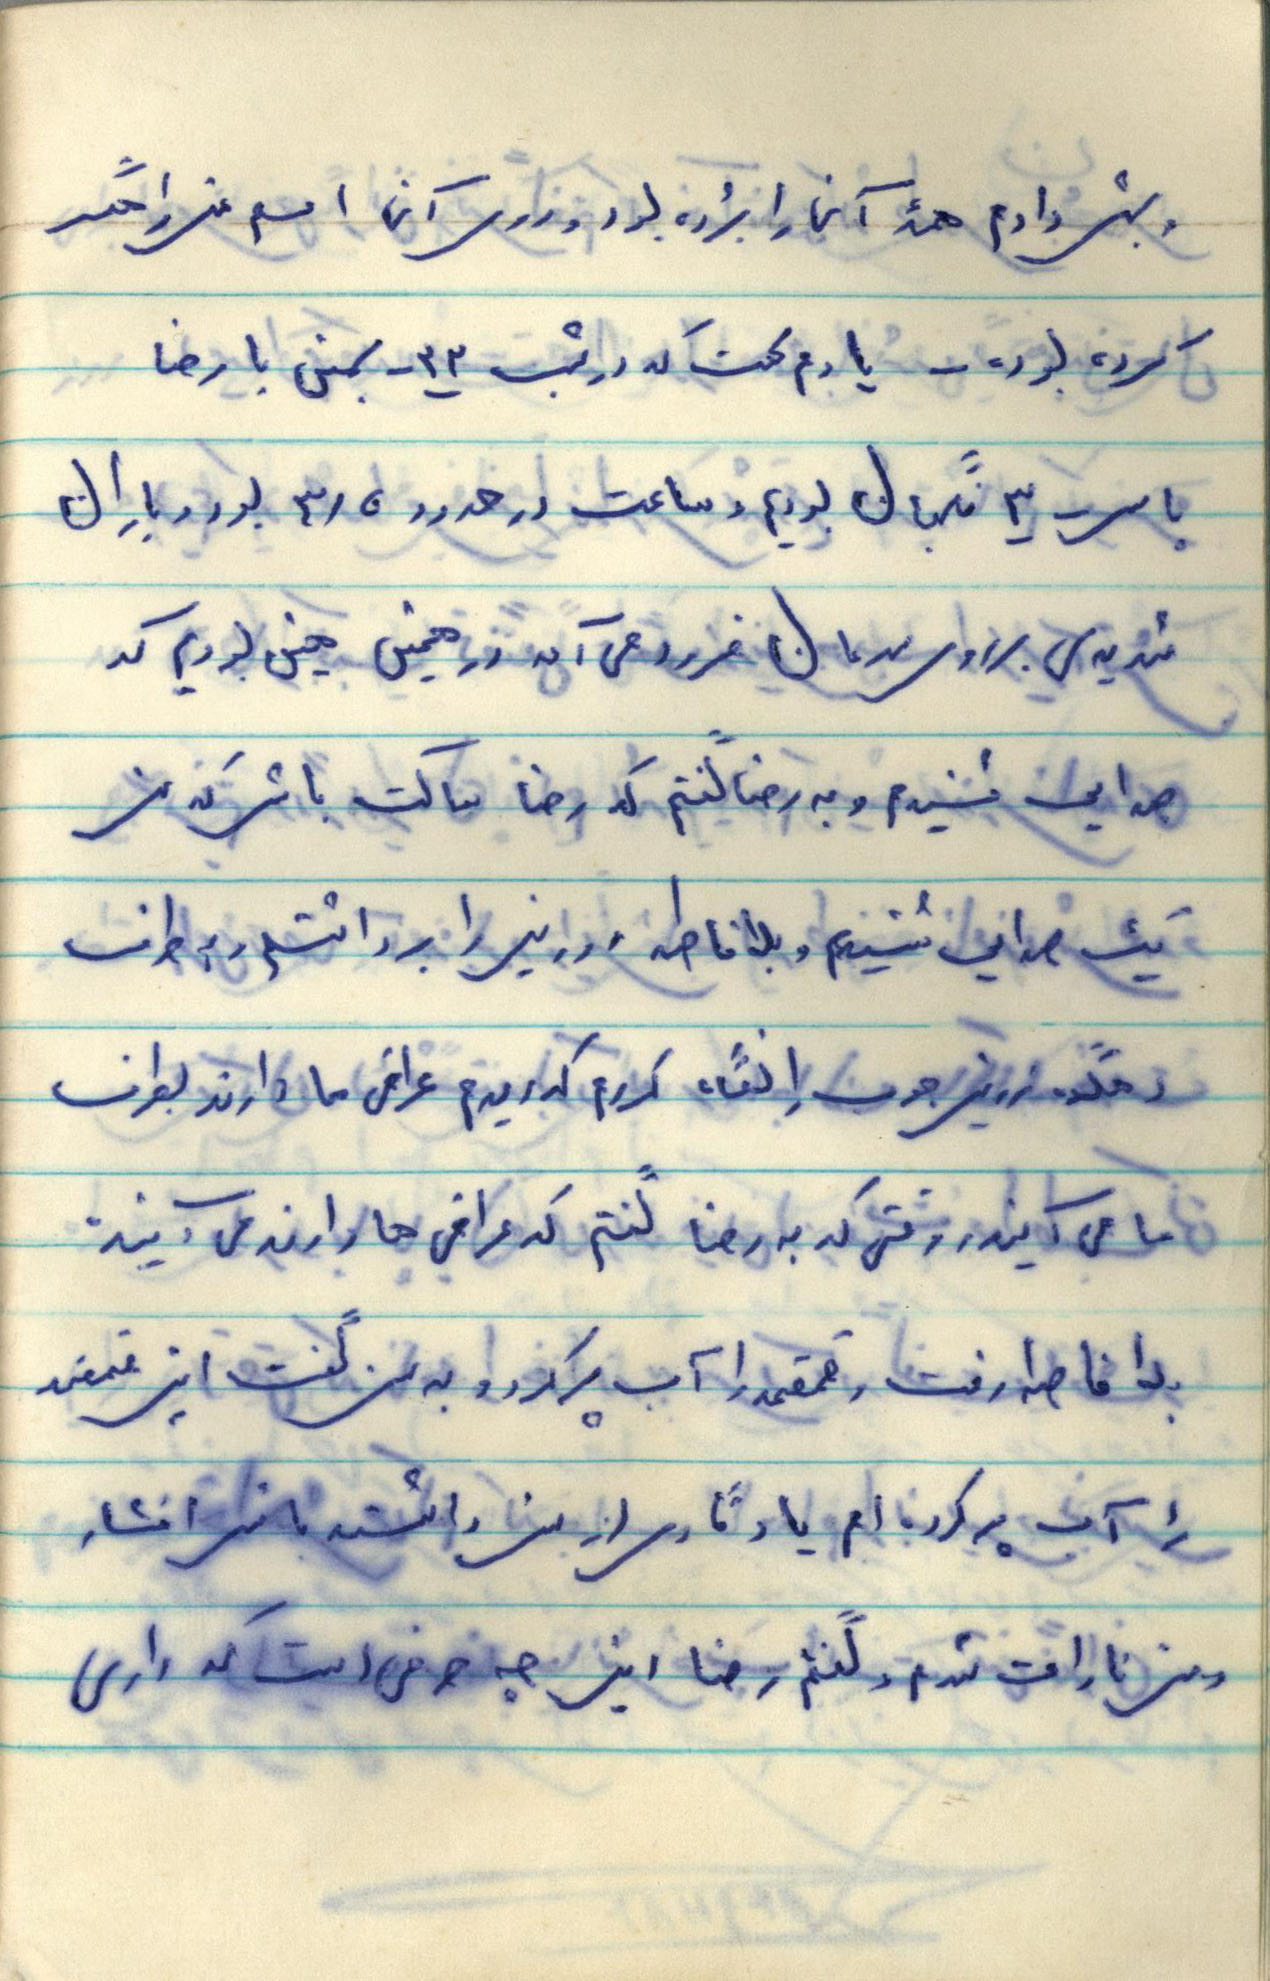 و بهش دادم همهٔ آنها را بریده بود و روی آنها اسم من را حک
کرده بود - یادم هست که در شب ۲۳ بهمن با رضا
پاس ۳ نگهبان بودیم و ساعت در حدود ۳/۵ بود و باران
شدیدی بر روی سرمان فرود می آمد در همین حین بودیم که
صدایی شنیدم و به رضا گفتم که رضا ساکت باش که من
یک صدایی شنیدم و بلافاصله دوربین را برداشتم و به طرف
دوربین را نگاه کردم که دیدم عراقی ها دارند بطرف
ما می آیند و وقتی که به رضا گفتم که عراقی ها دارند می آیند
بلافاصله رفت و قمقمه را آب پر کرد و به من گفت این قمقمه
را آب پر کرده ام یادگاری از من داشته باش
و من ناراحت شدم و گفتم رضا این چه حرفی است که داری